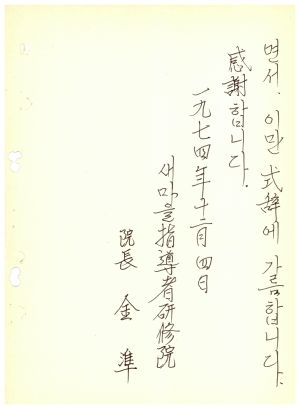 면서. 이만 式辞에 가름합니다.
感謝합니다.
一九七四年十二月四日
새마을指導者研修院
院長 金準